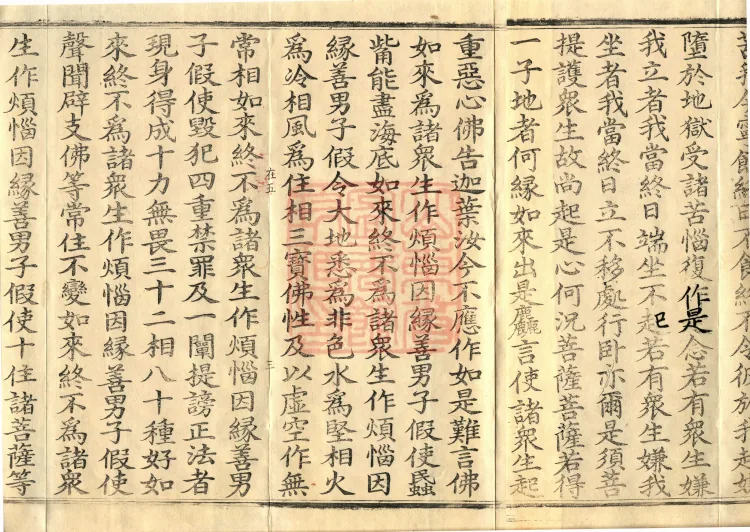 墮於地獄受諸苦惱復作是念若有衆生嫌
我立者我當終日端坐不起若有衆生嫌我
坐者我當終日立不移處行卧亦爾是須菩
提護衆生故尚起是心何況菩薩菩薩若得
一子地者何緣如來出是麤言使諸衆生起
重惡心佛告迦葉汝今不應作如是難言佛
如來爲諸衆生作煩惱因緣善男子假使蟁
觜能盡海底如來終不爲諸衆生作煩惱因
緣善男子假令大地悉爲非色水爲堅相火
爲冷相風爲住相三寶佛性及以虛空作無
在五 三
常相如來終不爲諸衆生作煩惱因緣善男
子假使毀犯四重禁罪及一闡提謗正法者
現身得成十力無畏三十二相八十種好如
來終不爲諸衆生作煩惱因緣善男子假使
聲聞辟支佛等常住不變如來終不爲諸衆
生作煩惱因緣善男子假使十住諸菩薩等